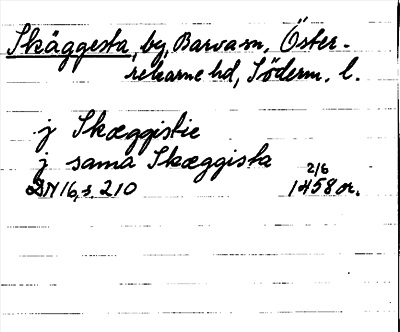 Skäggesta, by, Barva sn, Öster-
rekarne hd, Söderm. l.
j Skæggistie
j sama Skæggista
DN 16, s. 210 2/6 1458 or.